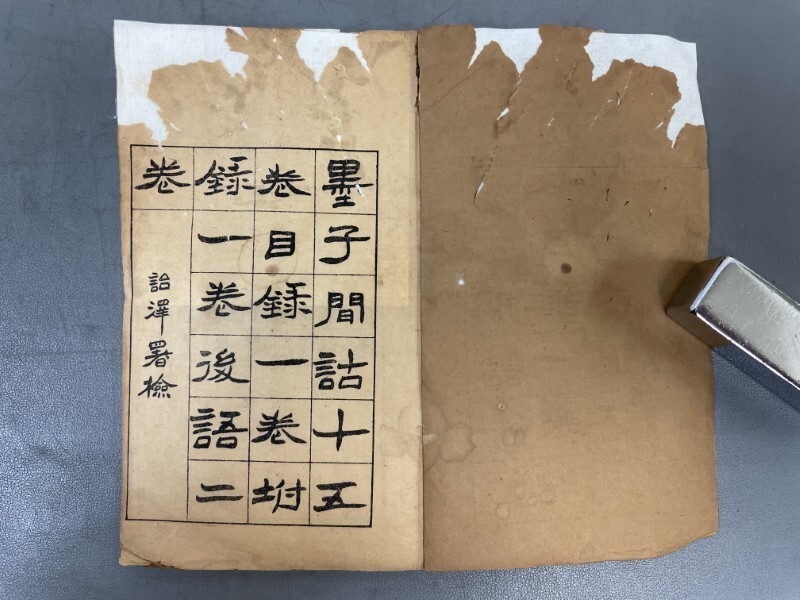 墨子間詁十五
卷目録一卷坿
録一卷後語二
卷
詒澤署檢